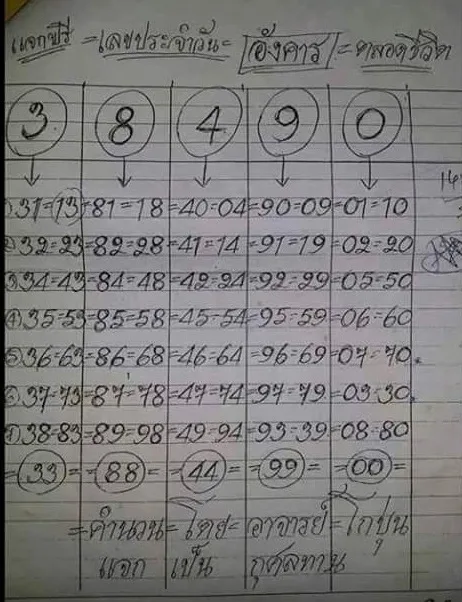 แจกฟรี = เลขประจำวัน = อังคาร = ตลอดชีวิต
3 8 4 9 0
① 31=13=81=18=40=04=90=09=01=10
② 32=23=82=28=41=14=91=19=02=20
③ 34=43=84=48=42=24=92=29=05=50
④ 35=53=85=58=45=54=95=59=06=60
⑤ 36=63=86=68=46=64=96=69=07=70
⑥ 37=73=87=78=47=74=97=79=03=30
⑦ 38=83=89=98=49=94=93=39=08=80
=33= =88= =44= =99= =00=
=คำนวน=โดย=อาจารย์=โกปูน
แจก เป็น กุศลทาน